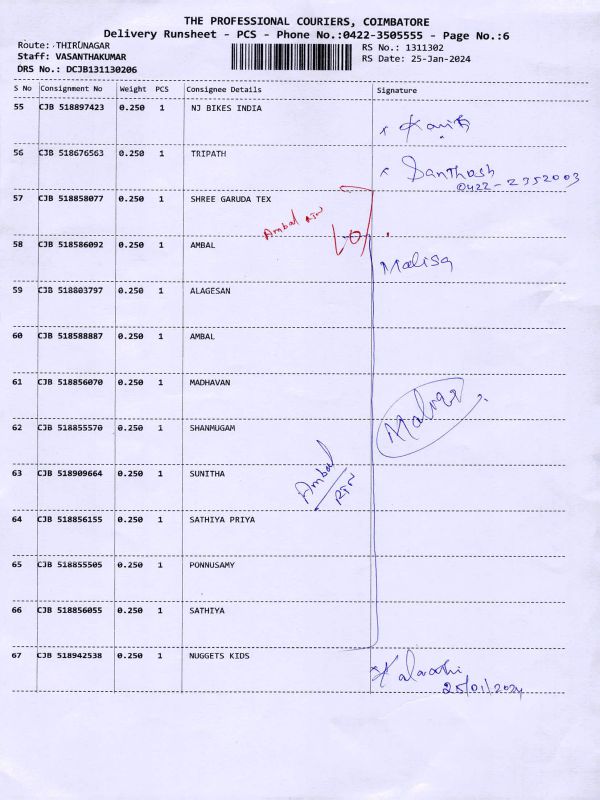 THE PROFESSIONAL COURIERS, COIMBATORE
Delivery Runsheet - PCS - Phone No.:0422-3505555 - Page No.:6
Route: THIRUNAGAR
RS No.: 1311302
Staff: VASANTHAKUMAR
RS Date: 25-Jan-2024
DRS No.: DCJB131130206
S No Consignment No Weight PCS Consignee Details Signature
55 CJB 518897423 0.250 1 NJ BIKES INDIA
56 CJB 518676563 0.250 1 TRIPATH x Santhosh
0422-2352003
57 CJB 518858077 0.250 1 SHREE GARUDA TEX
Ambal RTN
58 CJB 518586092 0.250 1 AMBAL
59 CJB 518803797 0.250 1 ALAGESAN
60 CJB 518588887 0.250 1 AMBAL
61 CJB 518856070 0.250 1 MADHAVAN
62 CJB 518855570 0.250 1 SHANMUGAM
63 CJB 518909664 0.250 1 SUNITHA
Ambal
RTN
64 CJB 518856155 0.250 1 SATHIYA PRIYA
65 CJB 518855505 0.250 1 PONNUSAMY
66 CJB 518856055 0.250 1 SATHIYA
67 CJB 518942538 0.250 1 NUGGETS KIDS
25/01/2024